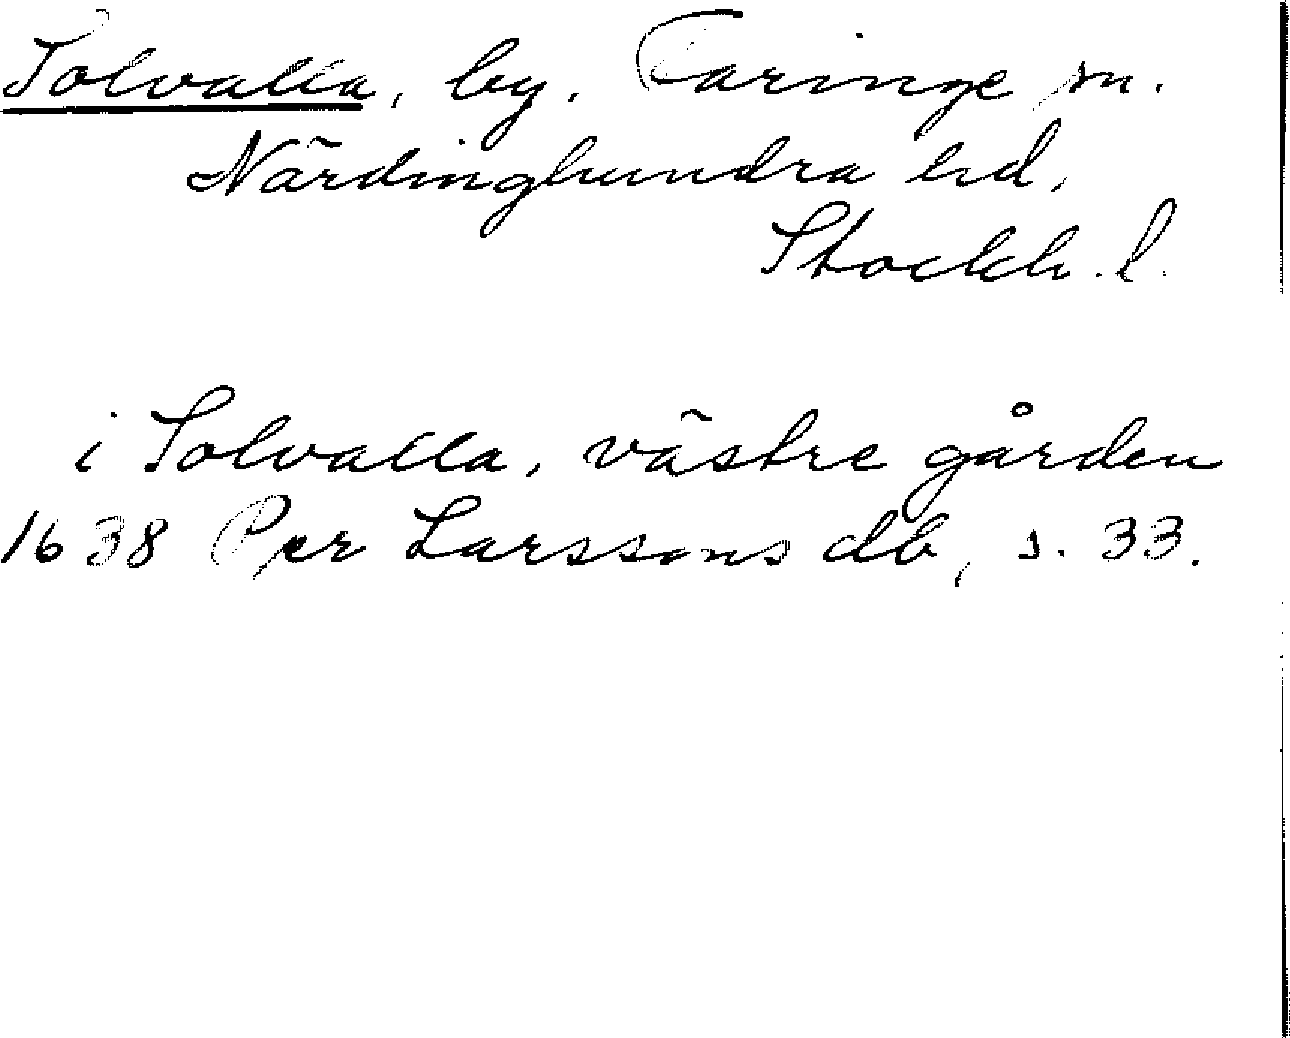 Solvalla, by. Faringe sn.
Närdinghundra hd,
Stockh. l.
i Solvalla, västre gården
1638 Per Larssons db, s. 33.